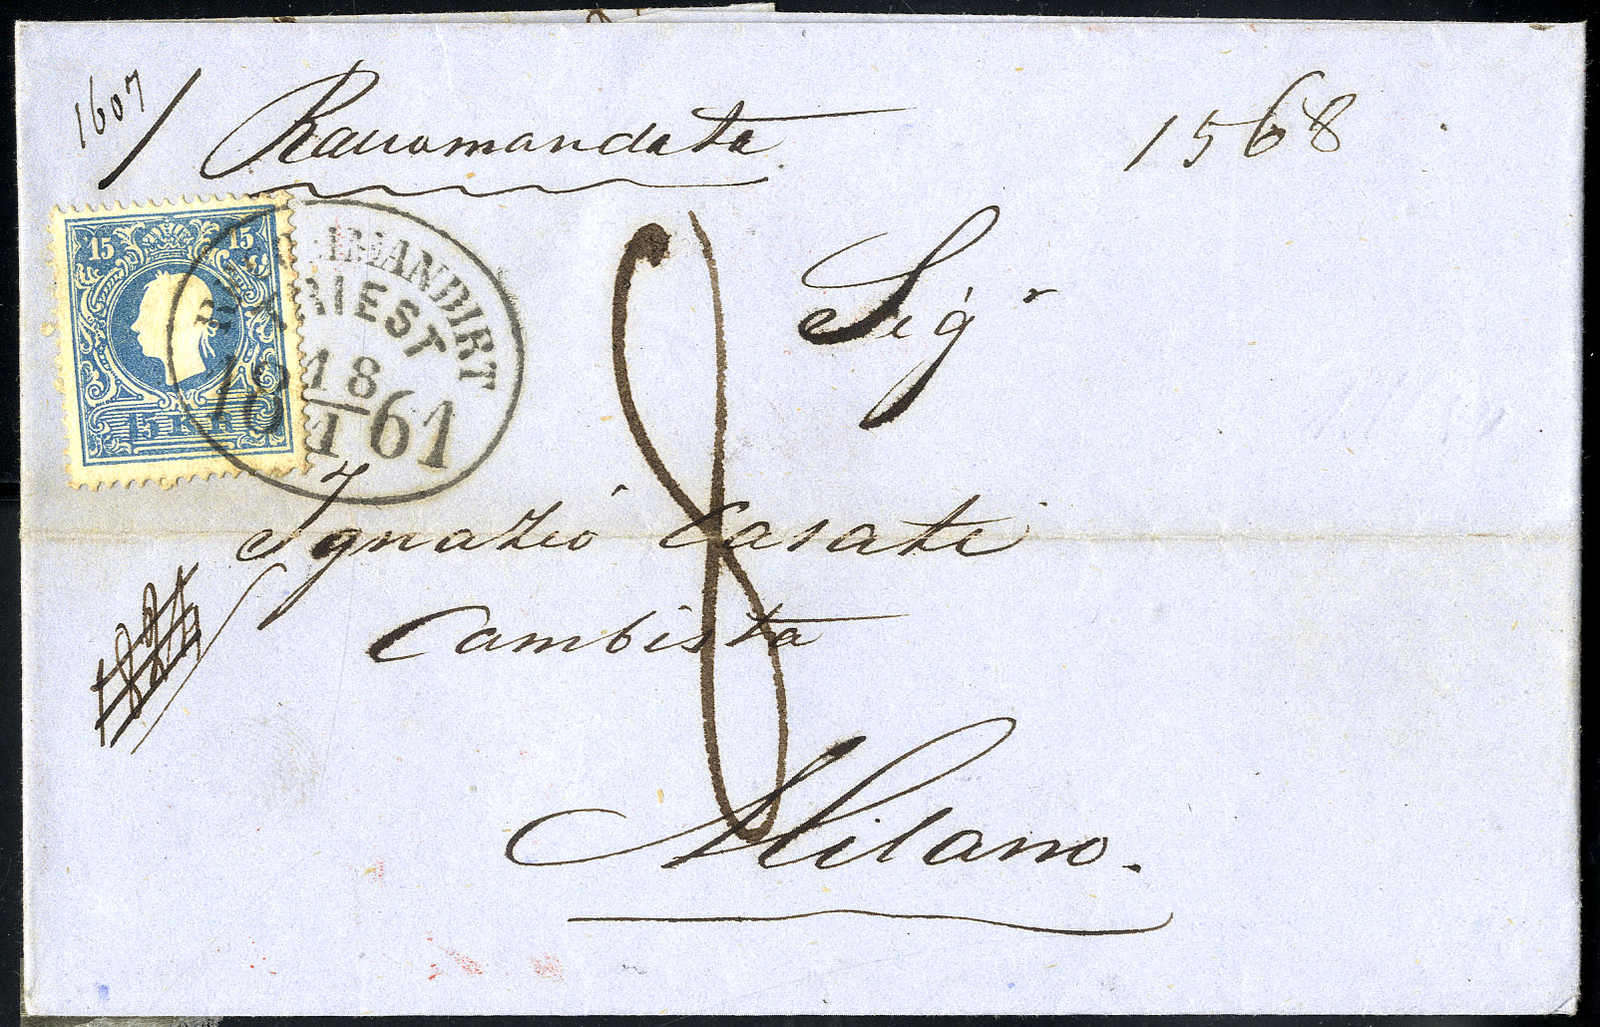 1607
Raccomandata
1568
15 15
15 KR
RECOMMANDIRT
TRIEST
18 18/1 61
8
Sigr
Ignazio Casati
Cambista
Milano.